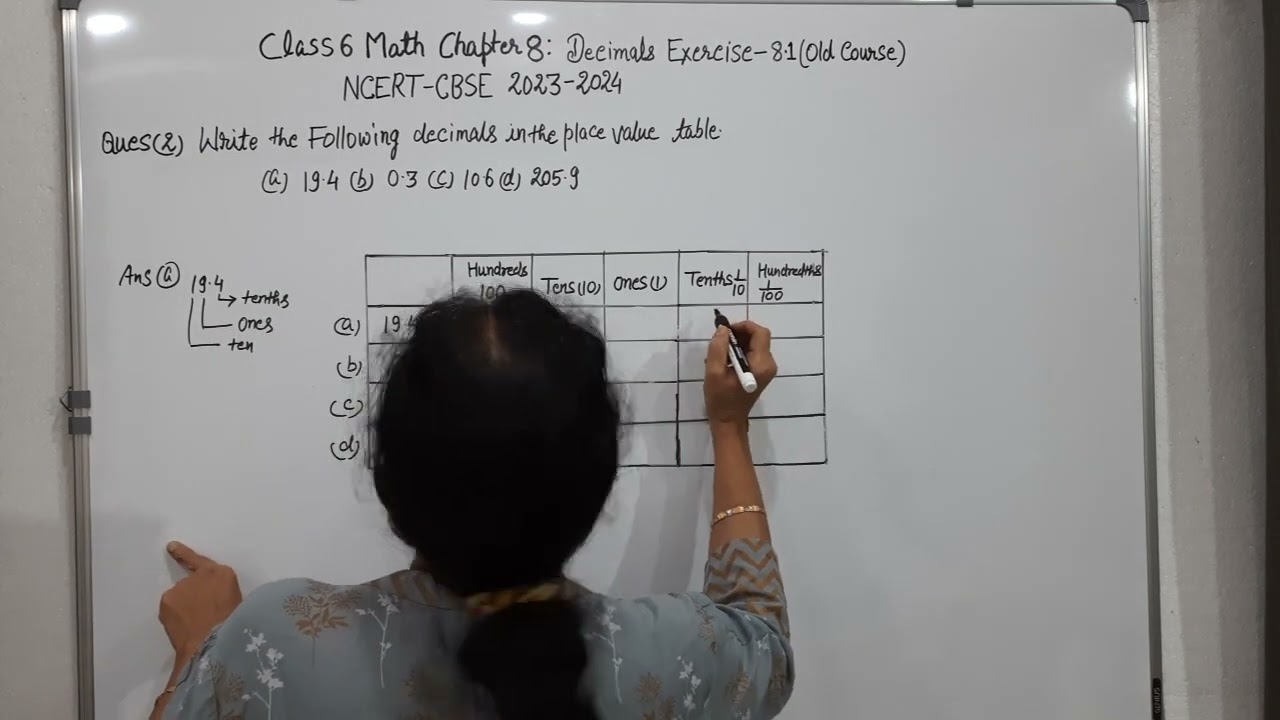 Class 6 Math Chapter 8: Decimals Exercise-8.1 (Old Course)
NCERT-CBSE 2023-2024
Ques(2) Write the Following decimals in the place value table.
(a) 19.4 (b) 0.3 (c) 10.6 (d) 205.9
Ans (a) 19.4
tenths
ones
ten
Hundreds 100 Tens(10) Ones(1) Tenths 1/10 Hundredths 1/100
(a) 19.4
(b)
(c)
(d)